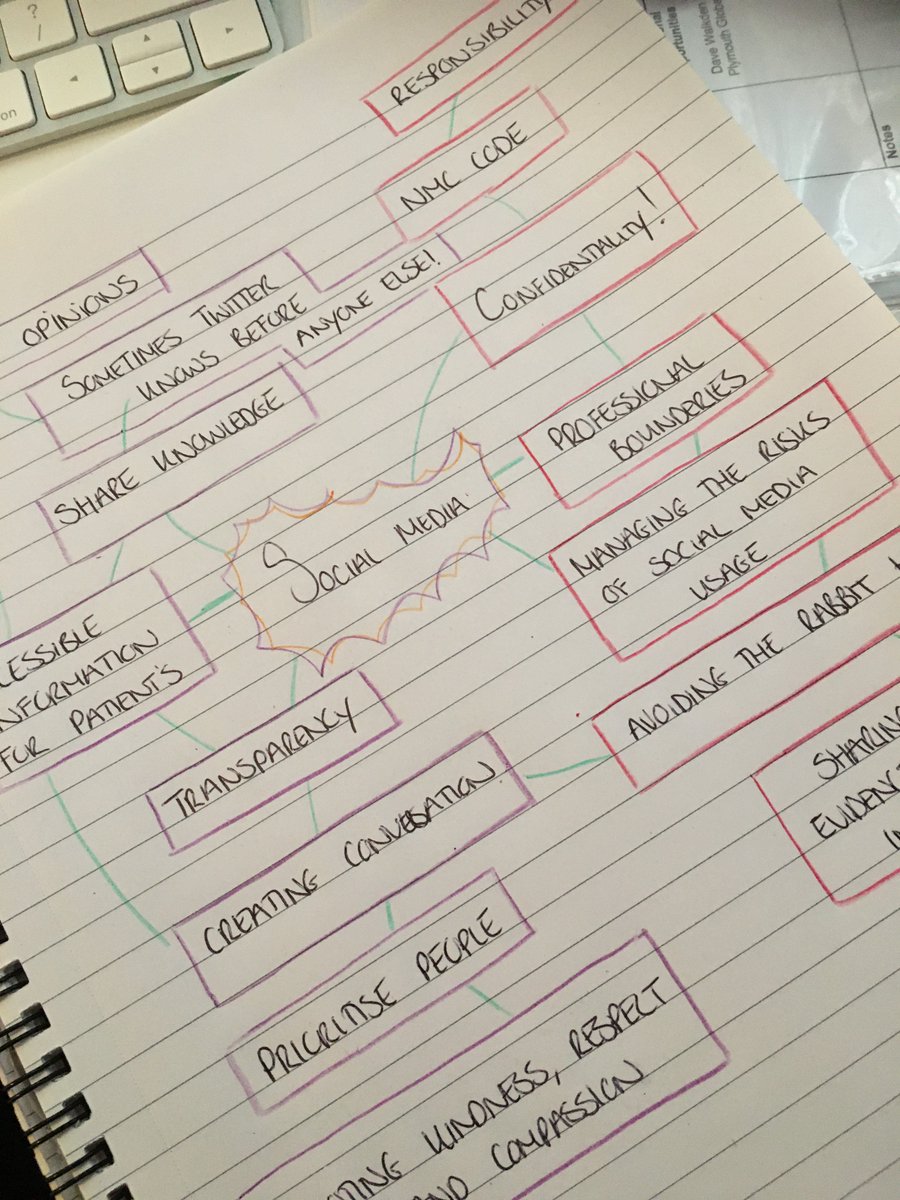 ?
/
on
Dave Walkden
Plymouth Globa
Notes
RESPONSIBILITY
NMC CODE
CONFIDENTALITY!
OPINIONS
SOMETIMES TWITTER
KNOWS BEFORE
ANYONE ELSE!
SHARE KNOWLEDGE
PROFESSIONAL
BOUNDERIES
SOCIAL MEDIA
MANAGING THE RISKS
OF SOCIAL MEDIA
USAGE
CESSIBLE
INFORMATION
FOR PATIENT'S
AVOIDING THE RABBIT
TRANSPARENCY
SHARING
EVIDENC
CREATING CONVESATION
PRIORITISE PEOPLE
TING KINDNESS, RESPECT
AND COMPASSION